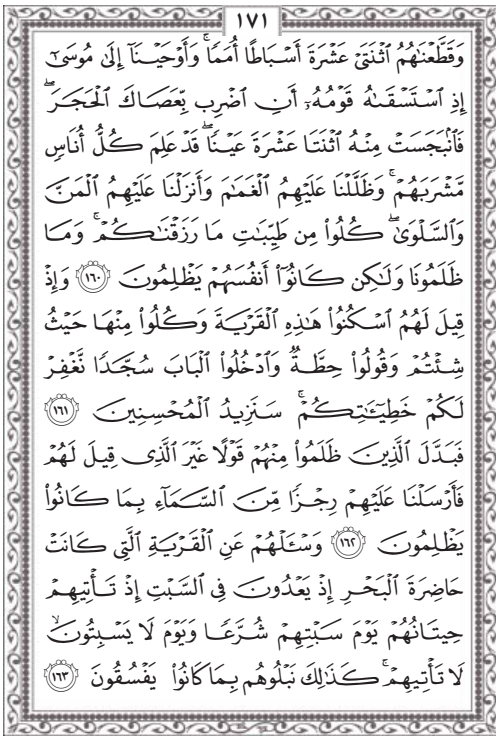 ١٧١
وَقَطَّعْنَٰهُمُ ٱثْنَتَىْ عَشْرَةَ أَسْبَاطًا أُمَمًاۚ وَأَوْحَيْنَآ إِلَىٰ مُوسَىٰٓ
إِذِ ٱسْتَسْقَىٰهُ قَوْمُهُۥٓ أَنِ ٱضْرِب بِّعَصَاكَ ٱلْحَجَرَۖ
فَٱنۢبَجَسَتْ مِنْهُ ٱثْنَتَا عَشْرَةَ عَيْنًاۖ قَدْ عَلِمَ كُلُّ أُنَاسٍ
مَّشْرَبَهُمْۚ وَظَلَّلْنَا عَلَيْهِمُ ٱلْغَمَٰمَ وَأَنزَلْنَا عَلَيْهِمُ ٱلْمَنَّ
وَٱلسَّلْوَىٰۖ كُلُوا۟ مِن طَيِّبَٰتِ مَا رَزَقْنَٰكُمْۚ وَمَا
ظَلَمُونَا وَلَٰكِن كَانُوٓا۟ أَنفُسَهُمْ يَظْلِمُونَ ١٦٠ وَإِذْ
قِيلَ لَهُمُ ٱسْكُنُوا۟ هَٰذِهِ ٱلْقَرْيَةَ وَكُلُوا۟ مِنْهَا حَيْثُ
شِئْتُمْ وَقُولُوا۟ حِطَّةٌ وَٱدْخُلُوا۟ ٱلْبَابَ سُجَّدًا نَّغْفِرْ
لَكُمْ خَطِيٓـَٰٔتِكُمْۚ سَنَزِيدُ ٱلْمُحْسِنِينَ ١٦١
فَبَدَّلَ ٱلَّذِينَ ظَلَمُوا۟ مِنْهُمْ قَوْلًا غَيْرَ ٱلَّذِى قِيلَ لَهُمْ
فَأَرْسَلْنَا عَلَيْهِمْ رِجْزًا مِّنَ ٱلسَّمَآءِ بِمَا كَانُوا۟
يَظْلِمُونَ ١٦٢ وَسْـَٔلْهُمْ عَنِ ٱلْقَرْيَةِ ٱلَّتِى كَانَتْ
حَاضِرَةَ ٱلْبَحْرِ إِذْ يَعْدُونَ فِى ٱلسَّبْتِ إِذْ تَأْتِيهِمْ
حِيتَانُهُمْ يَوْمَ سَبْتِهِمْ شُرَّعًا وَيَوْمَ لَا يَسْبِتُونَۙ
لَا تَأْتِيهِمْۚ كَذَٰلِكَ نَبْلُوهُم بِمَا كَانُوا۟ يَفْسُقُونَ ١٦٣